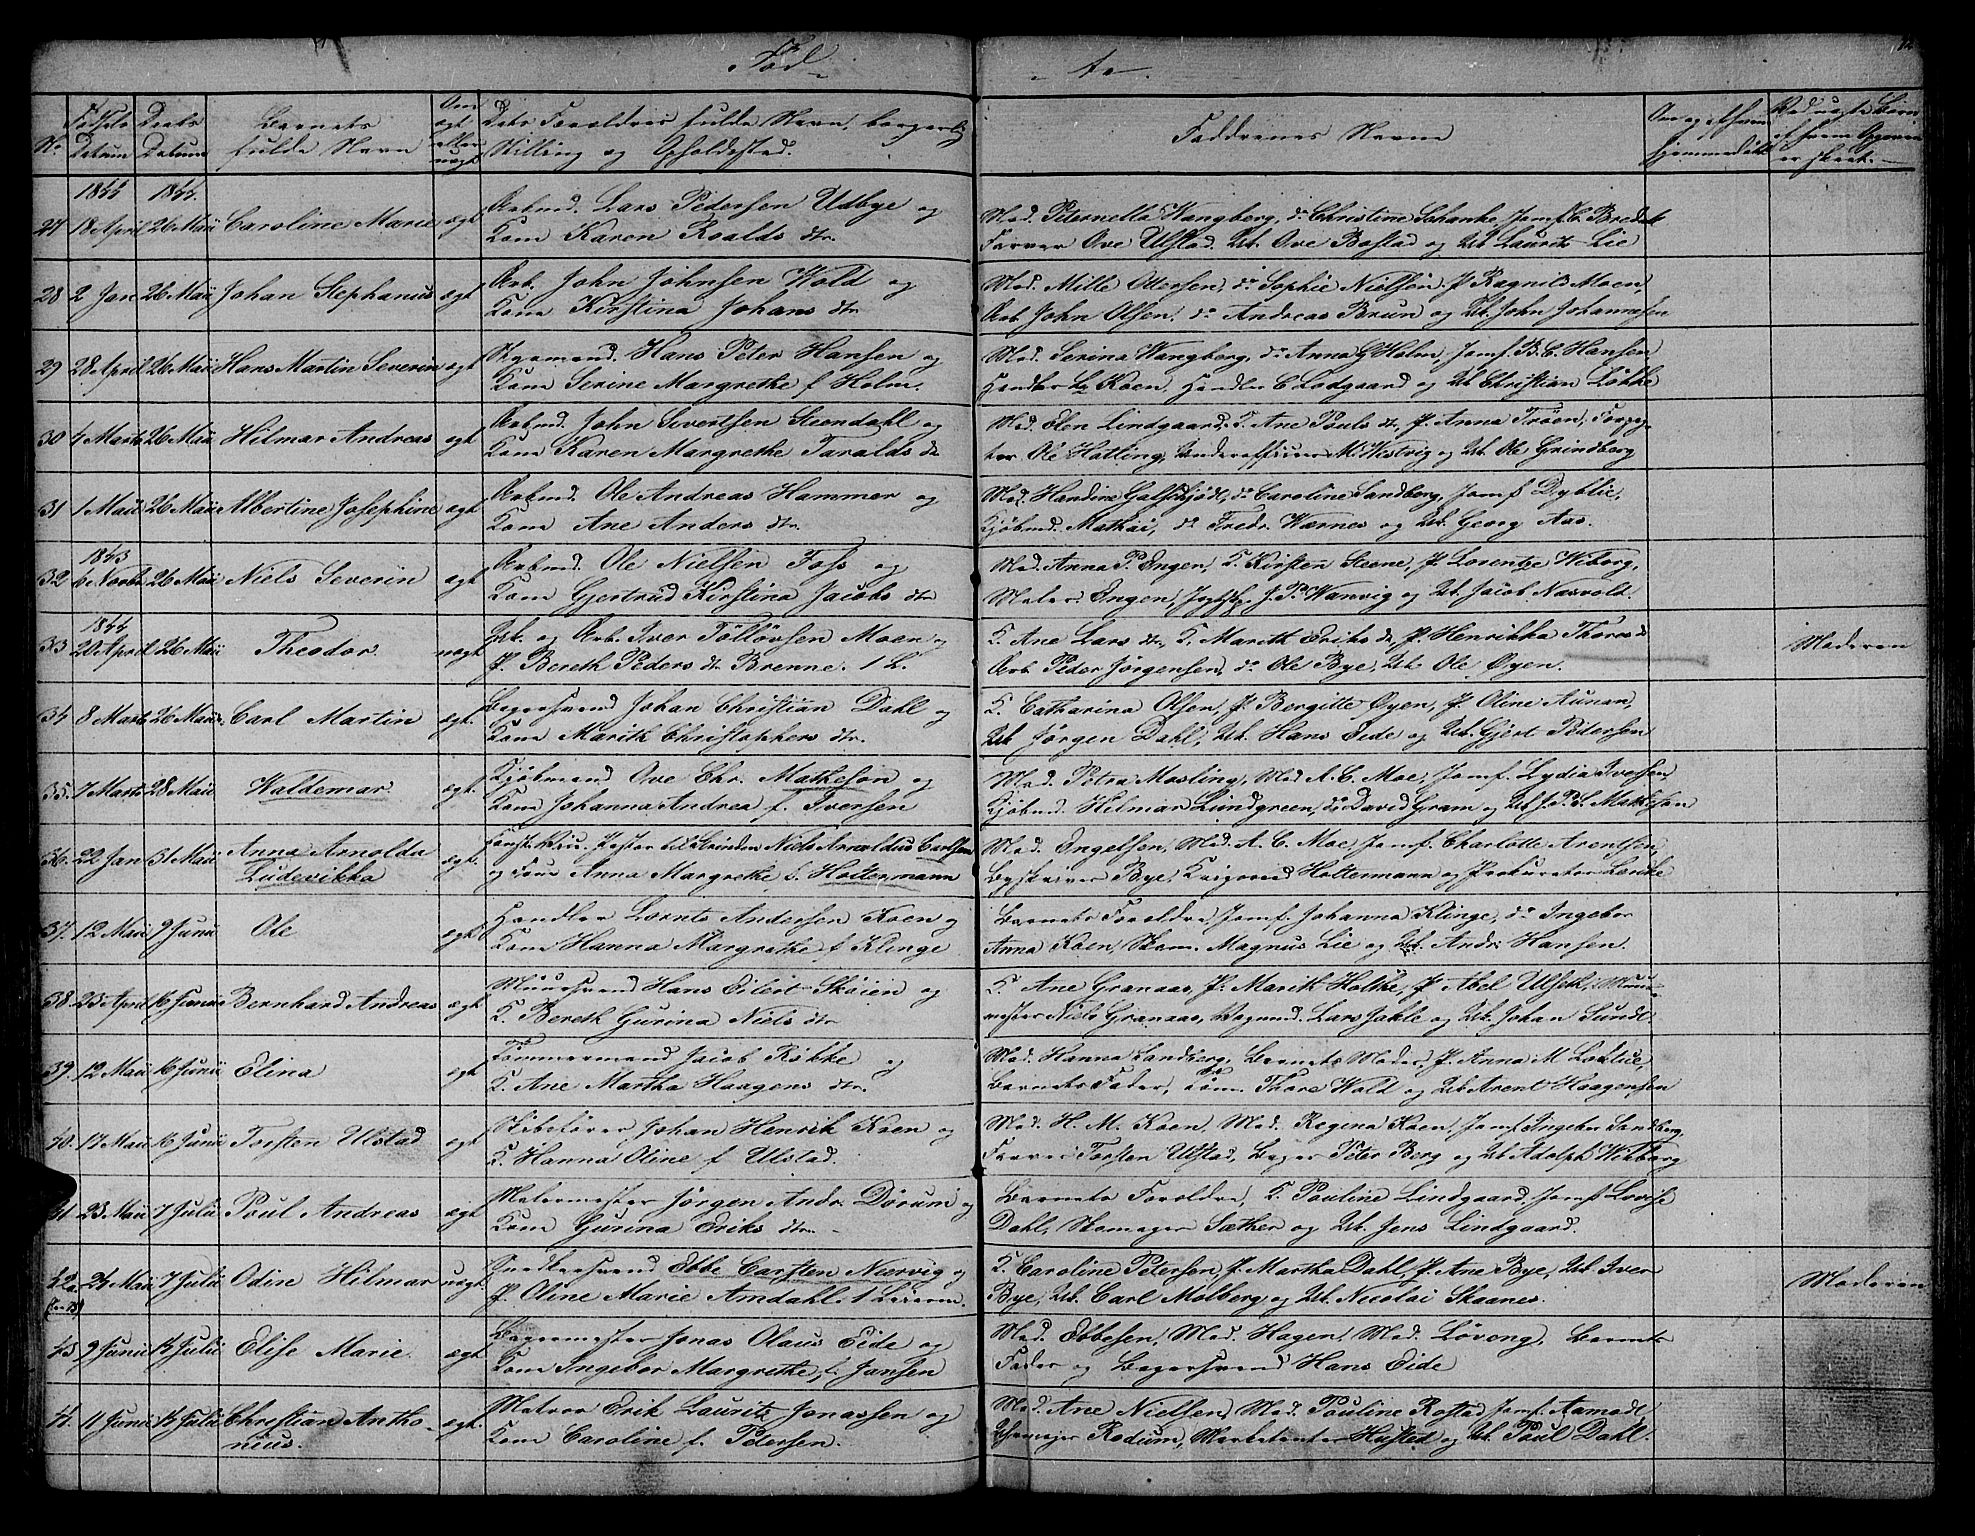 Fød - te.
No. Fødsels Datum Daabs Datum Barnets fulde Navn Om ægt eller uægt Dets Forældres fulde Navn, borgerlig Stilling og Opholdssted. Faddrenes Navne
1844 1844
27 18 April 26 Maii Caroline Marie ægt Arbmd. Lars Pedersen Udbye og
Kone Karen Roalds dtr.
Mad. Peternella Wangberg, do Christine Schanke, Jomf. C. Bredal
Farver Ove Ulstad, Ut. Ove Bostad og Ut. Laurits Lie
28 2 Jan 26 Maii Johan Stephanus ægt Arb. John Johnsen Wold og
Kone Kirstina Johans dtr
Mad. Mille Ottersen, do Sophie Nielsen, P. Ragnild Moen,
Arb. John Olsen, do Andreas Brun og Ut. John Johannesen
29 28 April 26 Maii Hans Martin Severin ægt Styrmand Hans Peter Hansen og
Kone Serine Margrethe f. Holm.
Mad. Serina Wangberg, do Anna G. Holm, Jomf. B. C. Hansen
Handler L. Koen, Handler C. Lodgaard og Ut. Christian Løkke
30 4 Marts 26 Maii Hilmar Andreas ægt Arbmd. John Sivertsen Steendahl og
Kone Karen Margrethe Taralds dr
Mad. Elen Lindgaard, K. Ane Pouls dtr, P. Anna Trøen, Forgy-
lder Ole Hatling, Underofficier M. Westvig og Ut. Ole Grindberg
31 1 Maii 26 Maii Albertine Josephine ægt Arbmd. Ole Andreas Hammer og
Kone Ane Anders dtr.
Mad. Handine Galschjødt, do Caroline Sandberg, Jomf. Dyblie,
Kjøbmd. Mathai, do Fredr. Wærnes og Ut. Georg Aas.
1843
32 6 Novbr 26 Maii Niels Severin ægt Arbmd. Ole Nielsen Foss og
Kone Gjertrud Kirstina Jacobs dtr
Mad. Anna P. Engen, K. Kirsten Steene, P. Lorentze Wiborg,
Maler Engen, J. P. Wanvig og Ut. Jacob Nasvold.
1844
33 20 April 26 Maii Theodor. uægt Ut. og Arb. Iver Tølløvsen Moen og
P. Bereth Peders dr Brenne. 1 L.
K. Ane Lars dtr, K. Marith Eriks dr, P. Henrikka Thores dr
Arb. Peder Jørgensen, do Ole Bye, Ut. Ole Øyen.
Moderen
34 8 Marts 26 Maii Carl Martin ægt. Bagersvend Johan Christian Dahl og
Kone Marith Christophers dtr.
K. Catharina Olsen, P. Bergitte Øyen, P. Oline Aunan,
Ut. Jørgen Dahl, Ut. Hans Eide og Ut. Gjert Pedersen
35. 7 Marts 28 Maii Waldemar ægt. Kjøbmand Ove Chr. Matheson og
Kone Johanna Andrea f. Iversen
Mad. Petra Mosling, Mad A. C. Moe, Jomf. Lydia Iversen
Kjøbmd. Hilmar Lundgreen, do David Gram og Ut. J. P. S. Mathesen
36. 22 Jan 31 Maii Anna Arnolda
Ludevikka ægt. Const. Niels Arnoldus Carlsen
og Frue Anna Margrethe f. Holtermann
Mad. Engelsen, Mad. A. C. Moe, Jomf. Charlotte Arentsen,
Byskriver Bye, Krigsraad Holtermann og Prokurator Lemke
37. 12 Maii 9 Junii Ole ægt Handler Lornts Andersen Koen og
Kone Hanna Margrethe f. Klinge
Barnets Forældre, Jomf. Johanna Klinge, do Ingebor
Anna Koen, Skom. Magnus Lie og Ut. Andr. Hansen.
38. 23 April 16 Junii Bernhard Andreas ægt Muursvend Hans Eilert Skøien og
K. Bereth Gurina Niels dtr
K. Ane Granaas, P. Marith Holthe, P. Abel Ulseth, Muur-
mester Niels Granaas, Lars Jahle og Ut. Johan Sundt.
39. 12 Maii 16 Junii Elina ægt Tømmermand Jacob Røkke og
K. Ane Martha Haagens dtr.
Mad. Hanna Sandberg, Barnets Moder, P. Anna M. Lohlie,
Barnets Fader, Tøm. Thore Wold og Ut. Arent Haagensen
40. 17 Maii 16 Junii Torsten Ulstad ægt Skibsfører Johan Henrik Koen og
K. Hanna Oline f. Ulstad.
Mad. H. M. Koen, Mad. Regina Koen, Jomf. Ingebor Sandberg,
Farver Torsten Ulstad, Bager Peter Berg og Ut. Adolph Wiborg
41 23 Maii 7 Julii Poul Andreas ægt Malermester Jørgen Andr. Dørum og
Kone Gurina Eriks dtr.
Barnets Forældre, K. Pauline Lindgaard, Jomf. Lovise
Dahl, Skomager Sæther og Ut. Jens Lindgaard.
42a 24 Maii 7 Julii Odin Hilmar uægt. Snedkersvend Ebbe Carsten Nærvig og
P. Oline Marie Amdahl. 1 Leierm.
K. Caroline Petersen, P. Martha Dahl, P. Ane Bye, Ut. Iver
Bye, Ut. Carl Molberg og Ut. Nicolai Skaanes.
Moderen
43 9 Junii 14 Julii Elise Marie ægt Bagermester Jonas Olaus Eide og
Kone Ingebor Margrethe f. Jansen
Mad. Ebbesen, Mad. Hagen, Mad. Løveng, Barnets
Fader og Bagersvend Hans Eide
44. 11 Junii 14 Julii Christian Antho-
nius. ægt. Matros Erik Lauritz Jonassen og
Kone Caroline f. Petersen.
Mad. Ane Nielsen, Mad. Pauline Rostad, Jomf. Aamodt,
Rodum, Marketenter Husted og Ut. Poul Dahl.